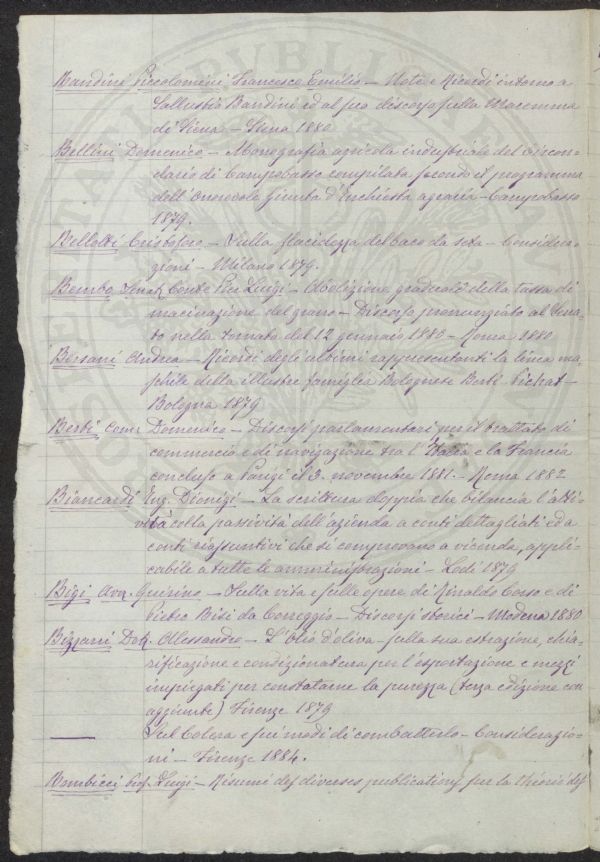 Bandini Piccolomini Francesco Emilio — Note e Ricordi intorno a
Sallustio Bandini ed al suo discorso sulla Maremma
di Siena — Siena 1880
Bellini Domenico — Monografia agricola industriale del Circon-
dario di Campobasso compilata secondo il programma
dell'Onorevole Giunta d'Inchiesta agraria — Campobasso
1879.
Bellotti Cristoforo — Sulla flacidezza del baco da seta — Considera-
zioni — Milano 1879.
Bembo Senat. Conte Pier Luigi — Abolizione graduale della tassa di
macinazione del grano — Discorso pronunziato al Sena-
to nella tornata del 12 gennaio 1880 — Roma 1880
Bersani Andrea — Ricordi degli
rappresentanti la linea ma-
schile della illustre famiglia Bolognese Berti Pichat —
Bologna 1879
Berti Com. Domenico — Discorsi parlamentari per il trattato di
commercio e di navigazione tra l'Italia e la Francia
concluso a Parigi il 3. novembre 1881. — Roma 1882
Biancardi Ing. Dionigi — La scrittura doppia che bilancia l'atti-
vità colla passività dell'azienda a conti dettagliati ed a
conti riassuntivi che si comprovano a vicenda, appli-
cabile a tutte le amministrazioni — Lodi 1879
Bigi Avv. Quirino — Sulla vita e sulle opere di Rinaldo Corso e di
Pietro Bisi da Correggio — Discorsi storici — Modena 1880
Bizzarri Dott. Alessandro — L'olio d'oliva — sulla sua estrazione, chia-
rificazione e condizionatura per l'esportazione e mezzi
impiegati per constatarne la purezza (terza edizione con
aggiunte) Firenze 1879
——— Sul Colera e sui modi di combatterlo — Considerazio-
ni — Firenze 1884.
Bombicci Prof. Luigi — Résumé des diverses publications sur la théorie des